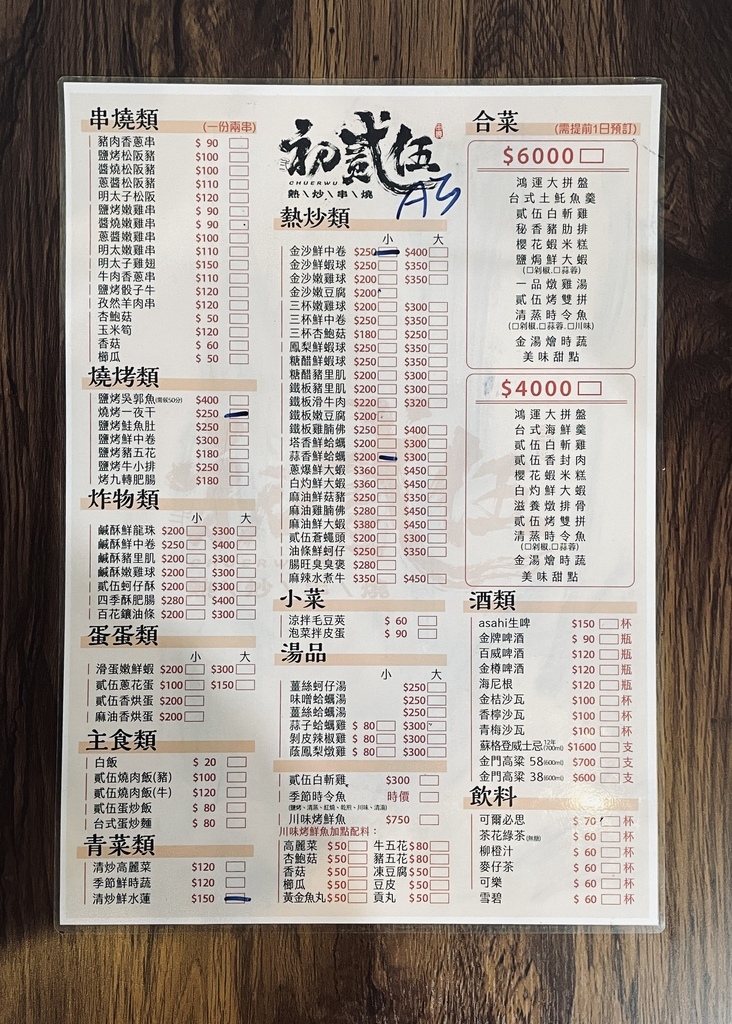 串燒類 (一份兩串)
豬肉香蔥串 $ 90
鹽烤松阪豬 $100
醬燒松阪豬 $100
蔥醬松阪豬 $110
明太子松阪 $120
鹽烤嫩雞串 $ 90
醬燒嫩雞串 $ 90
蔥醬嫩雞串 $100
明太嫩雞串 $110
明太子雞翅 $150
牛肉香蔥串 $110
鹽烤骰子牛 $120
孜然羊肉串 $120
杏鮑菇 $ 50
玉米筍 $120
香菇 $ 60
櫛瓜 $ 50
燒烤類
鹽烤吳郭魚(需候50分) $400
燒烤一夜干 $250
鹽烤鮭魚肚 $250
鹽烤鮮中卷 $300
鹽烤豬五花 $180
鹽烤牛小排 $250
烤九轉肥腸 $180
炸物類
小 大
鹹酥鮮龍珠 $200 $300
鹹酥鮮中卷 $250 $400
鹹酥豬里肌 $200 $300
鹹酥嫩雞球 $200 $300
貳伍蚵仔酥 $200 $300
四季酥肥腸 $280 $400
百花鑲油條 $200 $300
蛋蛋類
小 大
滑蛋嫩鮮蝦 $200 $300
貳伍蔥花蛋 $100 $150
貳伍香烘蛋 $200
麻油香烘蛋 $200
主食類
白飯 $ 20
貳伍燒肉飯(豬) $100
貳伍燒肉飯(牛) $120
貳伍蛋炒飯 $ 80
台式蛋炒麵 $ 80
青菜類
清炒高麗菜 $120
季節鮮時蔬 $120
清炒鮮水蓮 $150
初貳伍
CHUERWU
熱\炒\串\燒
A3
熱炒類
小 大
金沙鮮中卷 $250 $400
金沙鮮蝦球 $250 $350
金沙嫩雞球 $200 $350
金沙嫩豆腐 $200
三杯嫩雞球 $200 $300
三杯鮮中卷 $250 $350
三杯杏鮑菇 $180 $250
鳳梨鮮蝦球 $250 $350
糖醋鮮蝦球 $250 $350
糖醋豬里肌 $200 $300
鐵板豬里肌 $200 $300
鐵板滑牛肉 $220 $320
鐵板嫩豆腐 $200
鐵板雞腩佛 $250 $400
塔香鮮蛤蠣 $200 $300
蒜香鮮蛤蠣 $200 $300
蔥爆鮮大蝦 $360 $450
白灼鮮大蝦 $360 $450
麻油鮮菇豬 $250 $350
麻油雞腩佛 $280 $450
麻油鮮大蝦 $380 $450
貳伍蒼蠅頭 $200 $300
油條鮮蚵仔 $250 $350
腸旺臭臭褒 $280
麻辣水煮牛 $350 $450
小菜
涼拌毛豆莢 $ 60
泡菜拌皮蛋 $ 90
湯品
小 大
薑絲蚵仔湯 $250
味噌蛤蠣湯 $250
薑絲蛤蠣湯 $250
蒜子蛤蠣雞 $ 80 $300
剝皮辣椒雞 $ 80 $300
蔭鳳梨燉雞 $ 80 $300
貳伍白斬雞 $300
季節時令魚 時價
(鹽烤、清蒸、紅燒、乾煎、川味、清油)
川味烤鮮魚 $750
川味烤鮮魚加點配料：
高麗菜 $50 牛五花 $80
杏鮑菇 $50 豬五花 $80
香菇 $50 凍豆腐 $50
櫛瓜 $50 豆皮 $50
黃金魚丸 $50 貢丸 $50
合菜 (需提前1日預訂)
$6000
鴻運大拼盤
台式土魠魚羹
貳伍白斬雞
秘香豬肋排
櫻花蝦米糕
鹽焗鮮大蝦
(□剁椒.□蒜蓉)
一品燉雞湯
貳伍烤雙拼
清蒸時令魚
(□剁椒.□蒜蓉.□川味)
金湯燴時蔬
美味甜點
$4000
鴻運大拼盤
台式海鮮羹
貳伍白斬雞
貳伍香封肉
櫻花蝦米糕
白灼鮮大蝦
滋養燉排骨
貳伍烤雙拼
清蒸時令魚
(□剁椒.□蒜蓉)
金湯燴時蔬
美味甜點
酒類
asahi生啤 $150 杯
金牌啤酒 $ 90 瓶
百威啤酒 $120 瓶
金樽啤酒 $120 瓶
海尼根 $120 瓶
金桔沙瓦 $100 杯
香檸沙瓦 $100 杯
青梅沙瓦 $100 杯
蘇格登威士忌12年(700ml) $1600 支
金門高粱 58(600ml) $700 支
金門高粱 38(600ml) $600 支
飲料
可爾必思 $ 70 杯
茶花綠茶(無糖) $ 60 杯
柳橙汁 $ 60 杯
麥仔茶 $ 60 杯
可樂 $ 60 杯
雪碧 $ 60 杯